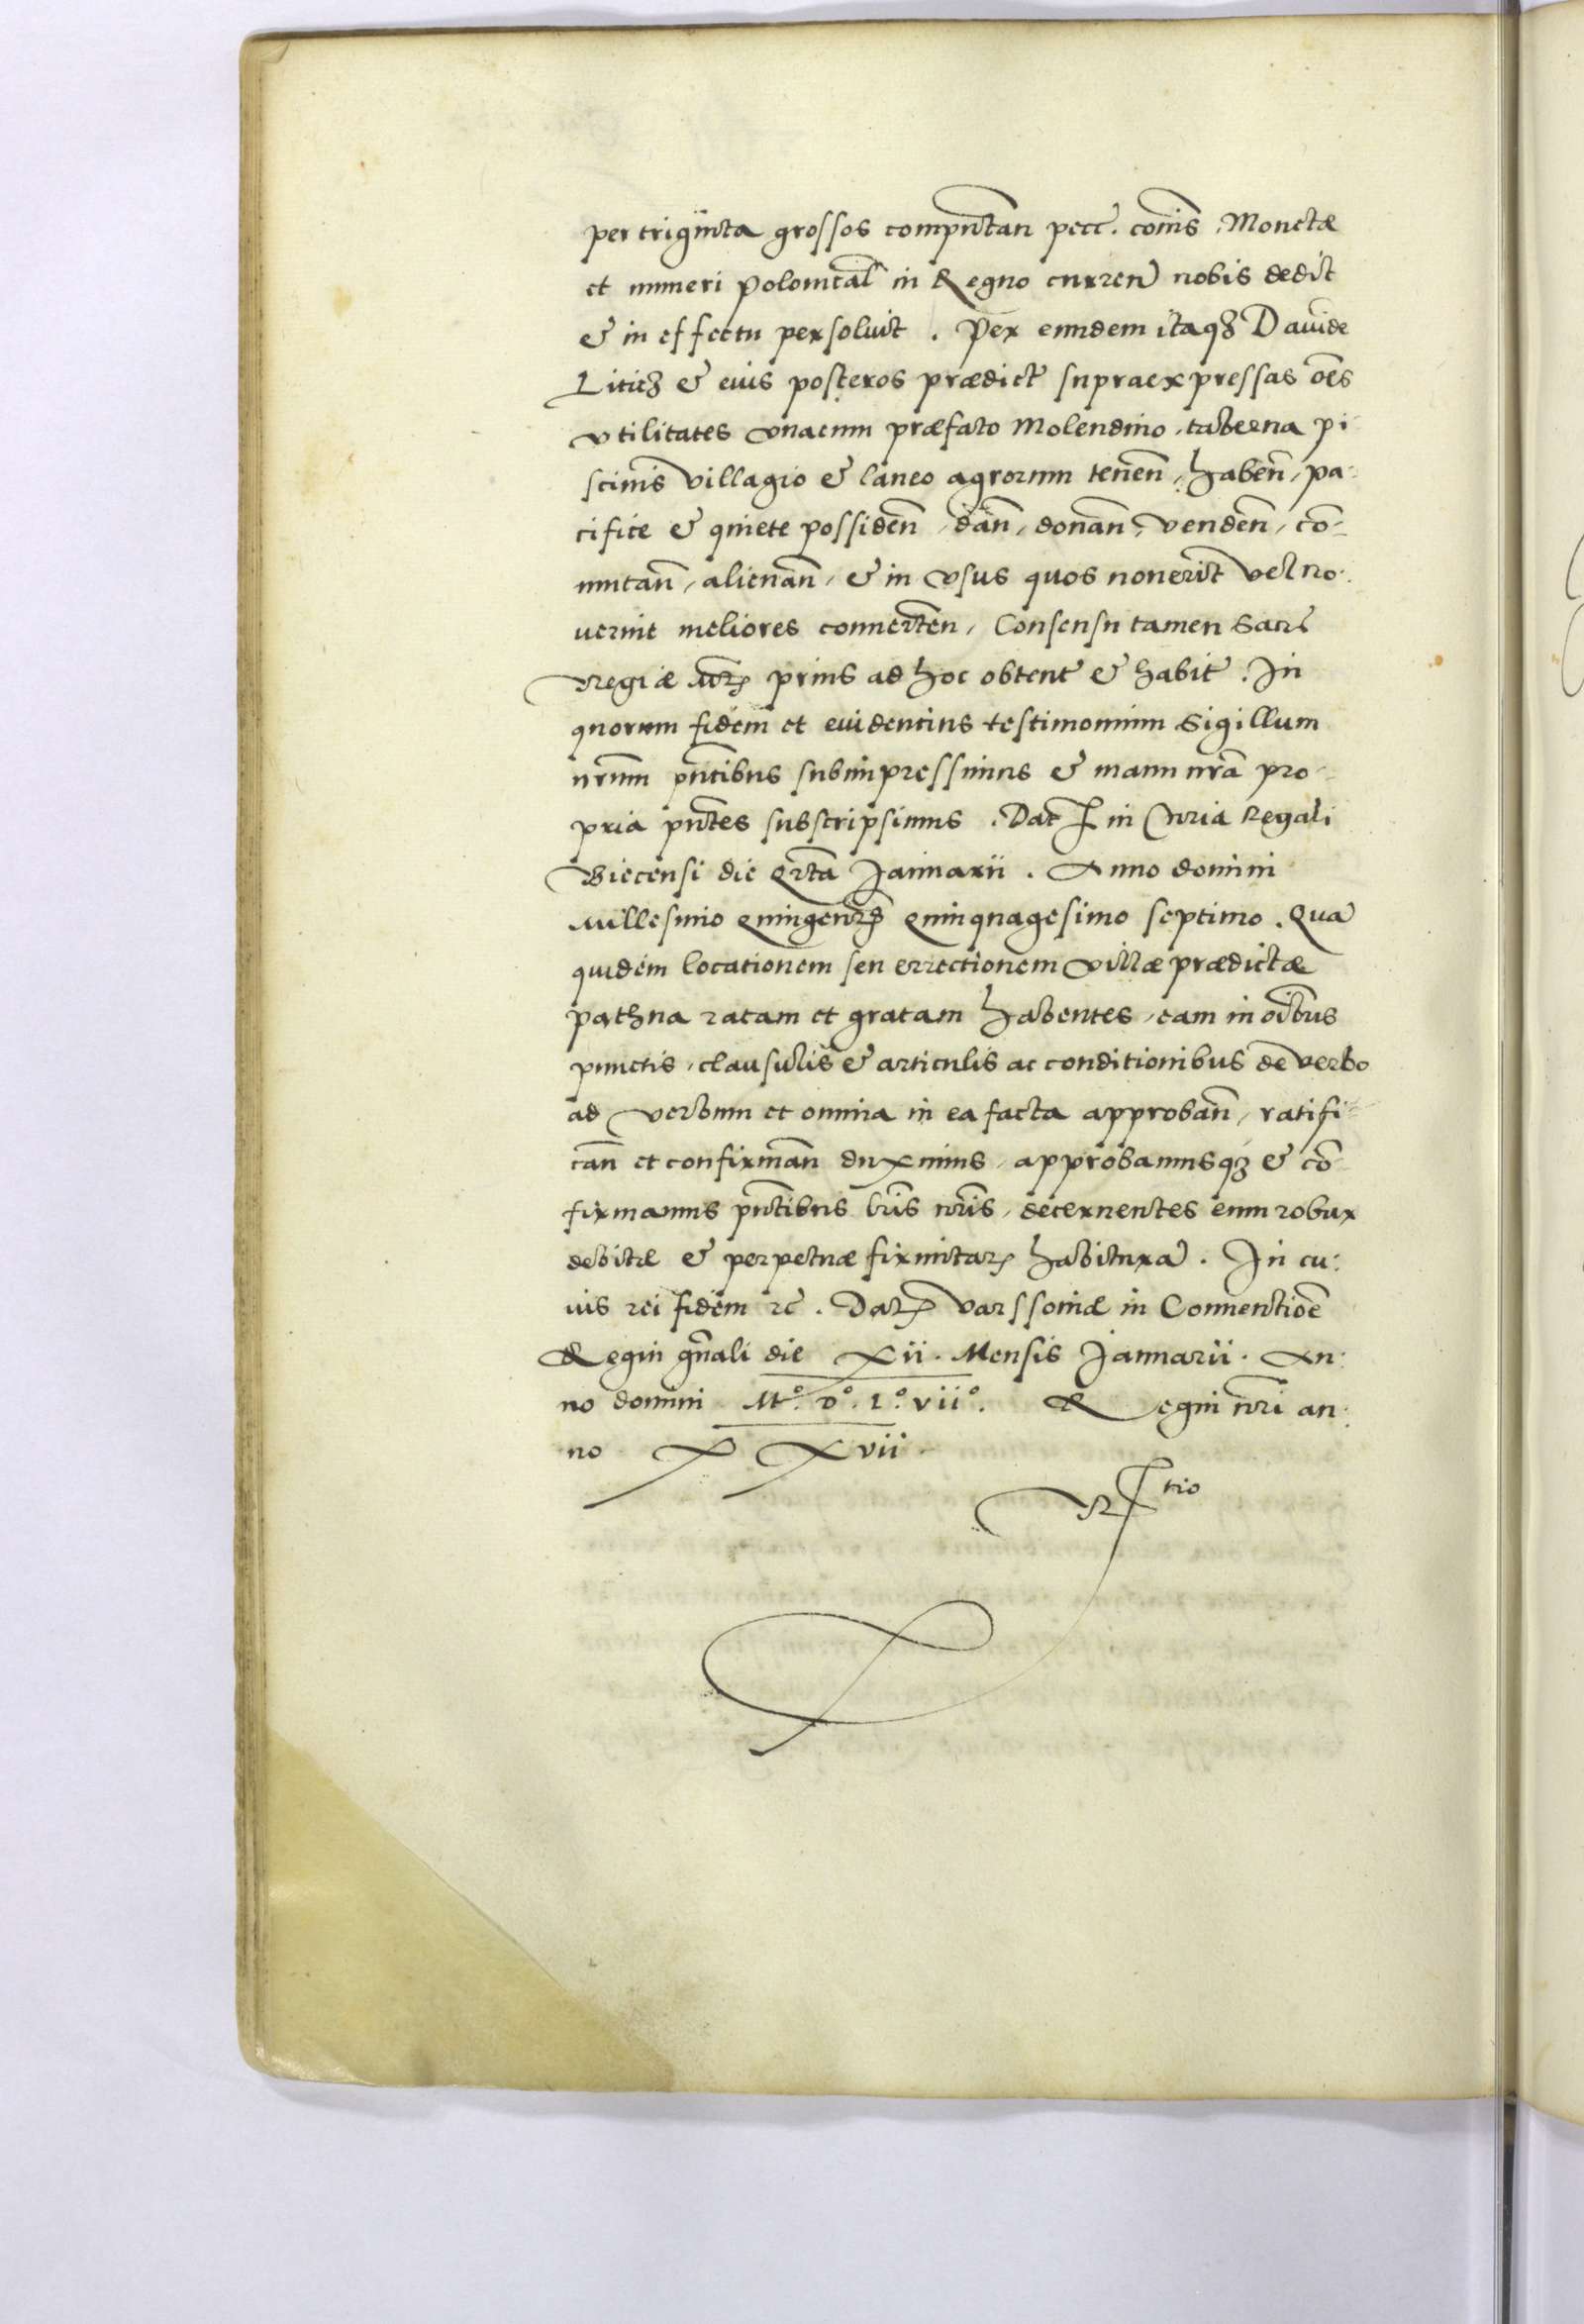 per triginta grossos computan pecc. com̄is Monetæ
et numeri Polonical in Regno curren nobis dedit
& in effectu persoluit . Per eundem itaq₃ Dauide
Liticz & eius posteros prædict supraexpressas oēs
vtilitates vnacum præfato Molendino, taberna pi
scinis villagio & laneo agrorum tenen̄, haben̄, pa-
cifice & quiete possiden̄, dan̄, donan̄, venden̄, cō-
mutan̄, alienan̄, & in vsus quos nouerit vel no-
uerint meliores conuerten, Consensu tamen Sacrę
Regiæ prius ad hoc obtent & habit . In
quorum fidem et euidentius testimonium Sigillum
nrūm pn̄tibus subimpressimus & manu nrā pro-
pria pn̄tes subscripsimus . Dat in Curia Regali
Biecensi die Qrta Januarii . Anno domini
Millesimo Quingen Quinquagesimo septimo . Qua
quidem locationem seu errectionem villæ prædictæ
pathna ratam et gratam habentes, eam in oībus
punctis, clausulis & articulis ac conditionibus de verbo
ad verbum et omnia in ea facta approban̄, ratifi-
can̄ et confirman̄ duximus, approbamusq₃ & cō-
firmamus pn̄tibus lrīs nrīs, decernentes eum robur
debitæ & perpetuæ firmitatꝭ habitura . In cu-
ius rei fidem rc̄ . Datꝭ Varssoniæ in Conuentiōe
Regni gn̄ali die Xii . Mensis Januarii . An-
no domini M°. D°. L°. vii°. Regni nrī an-
no XXvii
R tio